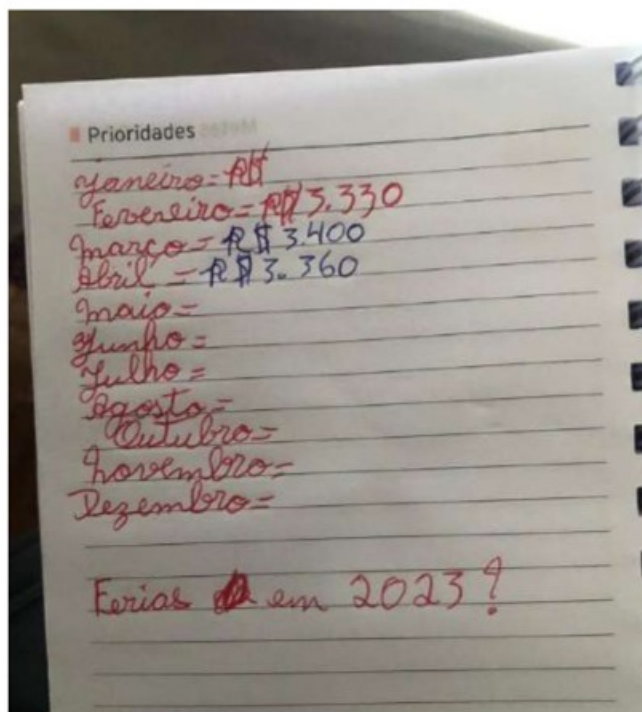 Prioridades
Janeiro = R$
Fevereiro = R$ 3.330
março = R$ 3.400
Abril = R$ 3.360
maio =
Junho =
Julho =
Agosto =
Outubro =
novembro =
Dezembro =
Ferias em 2023?